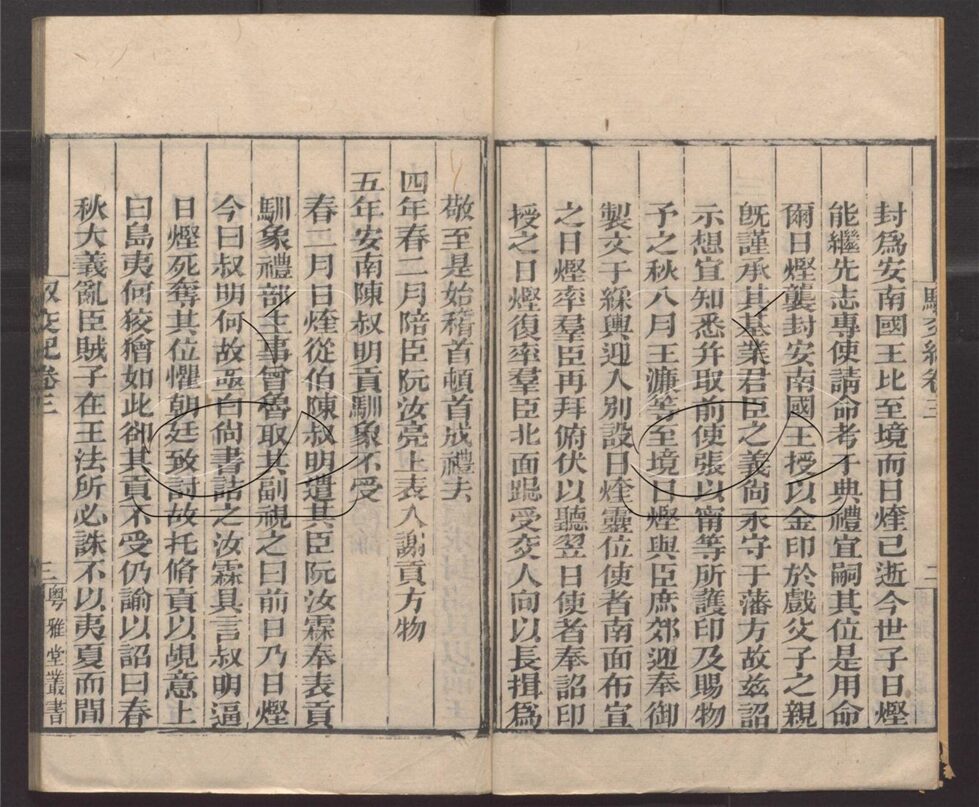 封爲安南國王比至境而日煃已逝今世子日熞
能繼先志專使請命考于典禮宜嗣其位是用命
爾日熞襲封安南國王授以金印於戲父子之親
旣謹承其基業君臣之義尙永守于藩方故兹詔
示想宜知悉幷取前使張以甯等所護印及賜物
予之秋八月王濂等至境日熞與臣庶郊迎奉御
製文于綵輿迎人別設日煃靈位使者南面布宣
之日熞率羣臣再拜俯伏以聽翌日使者奉詔印
授之日熞復率羣臣北面跽受交人向以長揖爲
馭交紀卷三
二
敬至是始稽首頓首成禮去
四年春二月陪臣阮汝亮上表入謝貢方物
五年安南陳叔明貢馴象不受
春二月日煃從伯陳叔明遣其臣阮汝霖奉表貢
馴象禮部主事曾魯取其副視之曰前日乃日熞
今曰叔明何故亟白尙書詰之汝霖具言叔明逼
日熞死奪其位懼朝廷致討故托脩貢以覘意上
曰島夷何狡獪如此卻其貢不受仍諭以詔曰春
秋大義亂臣賊子在王法所必誅不以夷夏而間
馭交記卷三
三
粤雅堂叢書